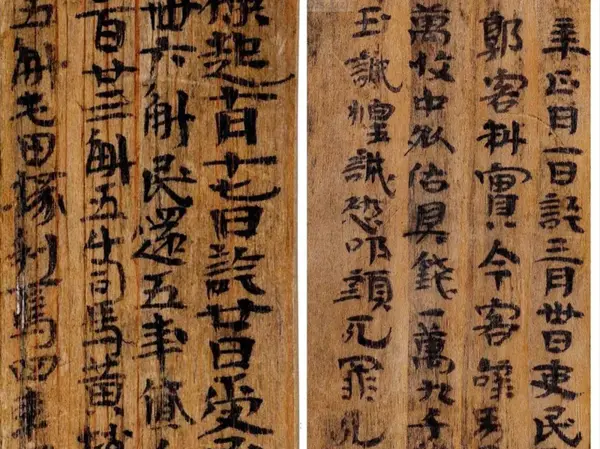 年正月一日訖三月卅日吏民
郭客料實今客辭男
萬枚中收估具錢一萬九千
玉誠惶誠恐叩頭死罪死
起七月十七日訖廿日受
卌六斛民還五年貸
百廿三斛五斗司馬黃升
五斛屯田掾利焉四年